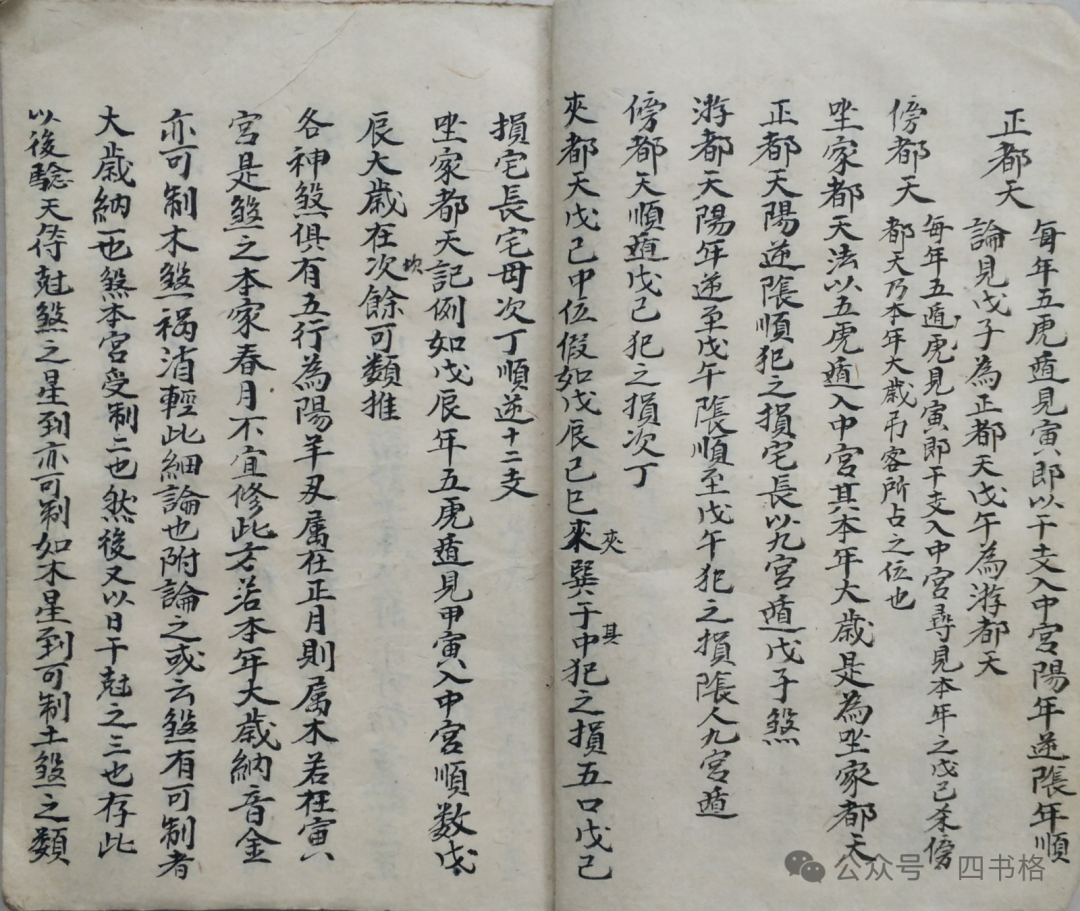 正都天
每年五虎遁見寅即以干支入中宮陽年逆隂年順
論見戊子為正都天戊午為游都天
傍都天
每年五遁虎見寅即干支入中宮尋見本年之戊己系傍
都天乃本年大歲吊客所占之位也
坐家都天法以五虎遁入中宮其本年大歲是為坐家都天
正都天陽逆隂順犯之損宅長以九宮遁戊子煞
游都天陽年逆至戊午隂順至戊午犯之損隂人九宮遁
傍都天順遁戊己犯之損次丁
夾都天戊己中位假如戊辰己巳來夾巽于其中犯之損五口戊己
損宅長宅母次丁順逆十二支
坐家都天記例如戊辰年五虎遁見甲寅入中宮順数戊
辰大歲在坎次餘可類推
各神煞俱有五行為陽羊刃属在正月則属木若在寅
宮是煞之本家春月不宜修此方若本年大歲納音金
亦可制木煞祸消輕此細論也附論之或云煞有可制者
大歲納一也煞本宮受制二也然後又以日干尅之三也存此
以後驗天待尅煞之星到亦可制如木星到可制土煞之類
公众号 四书格